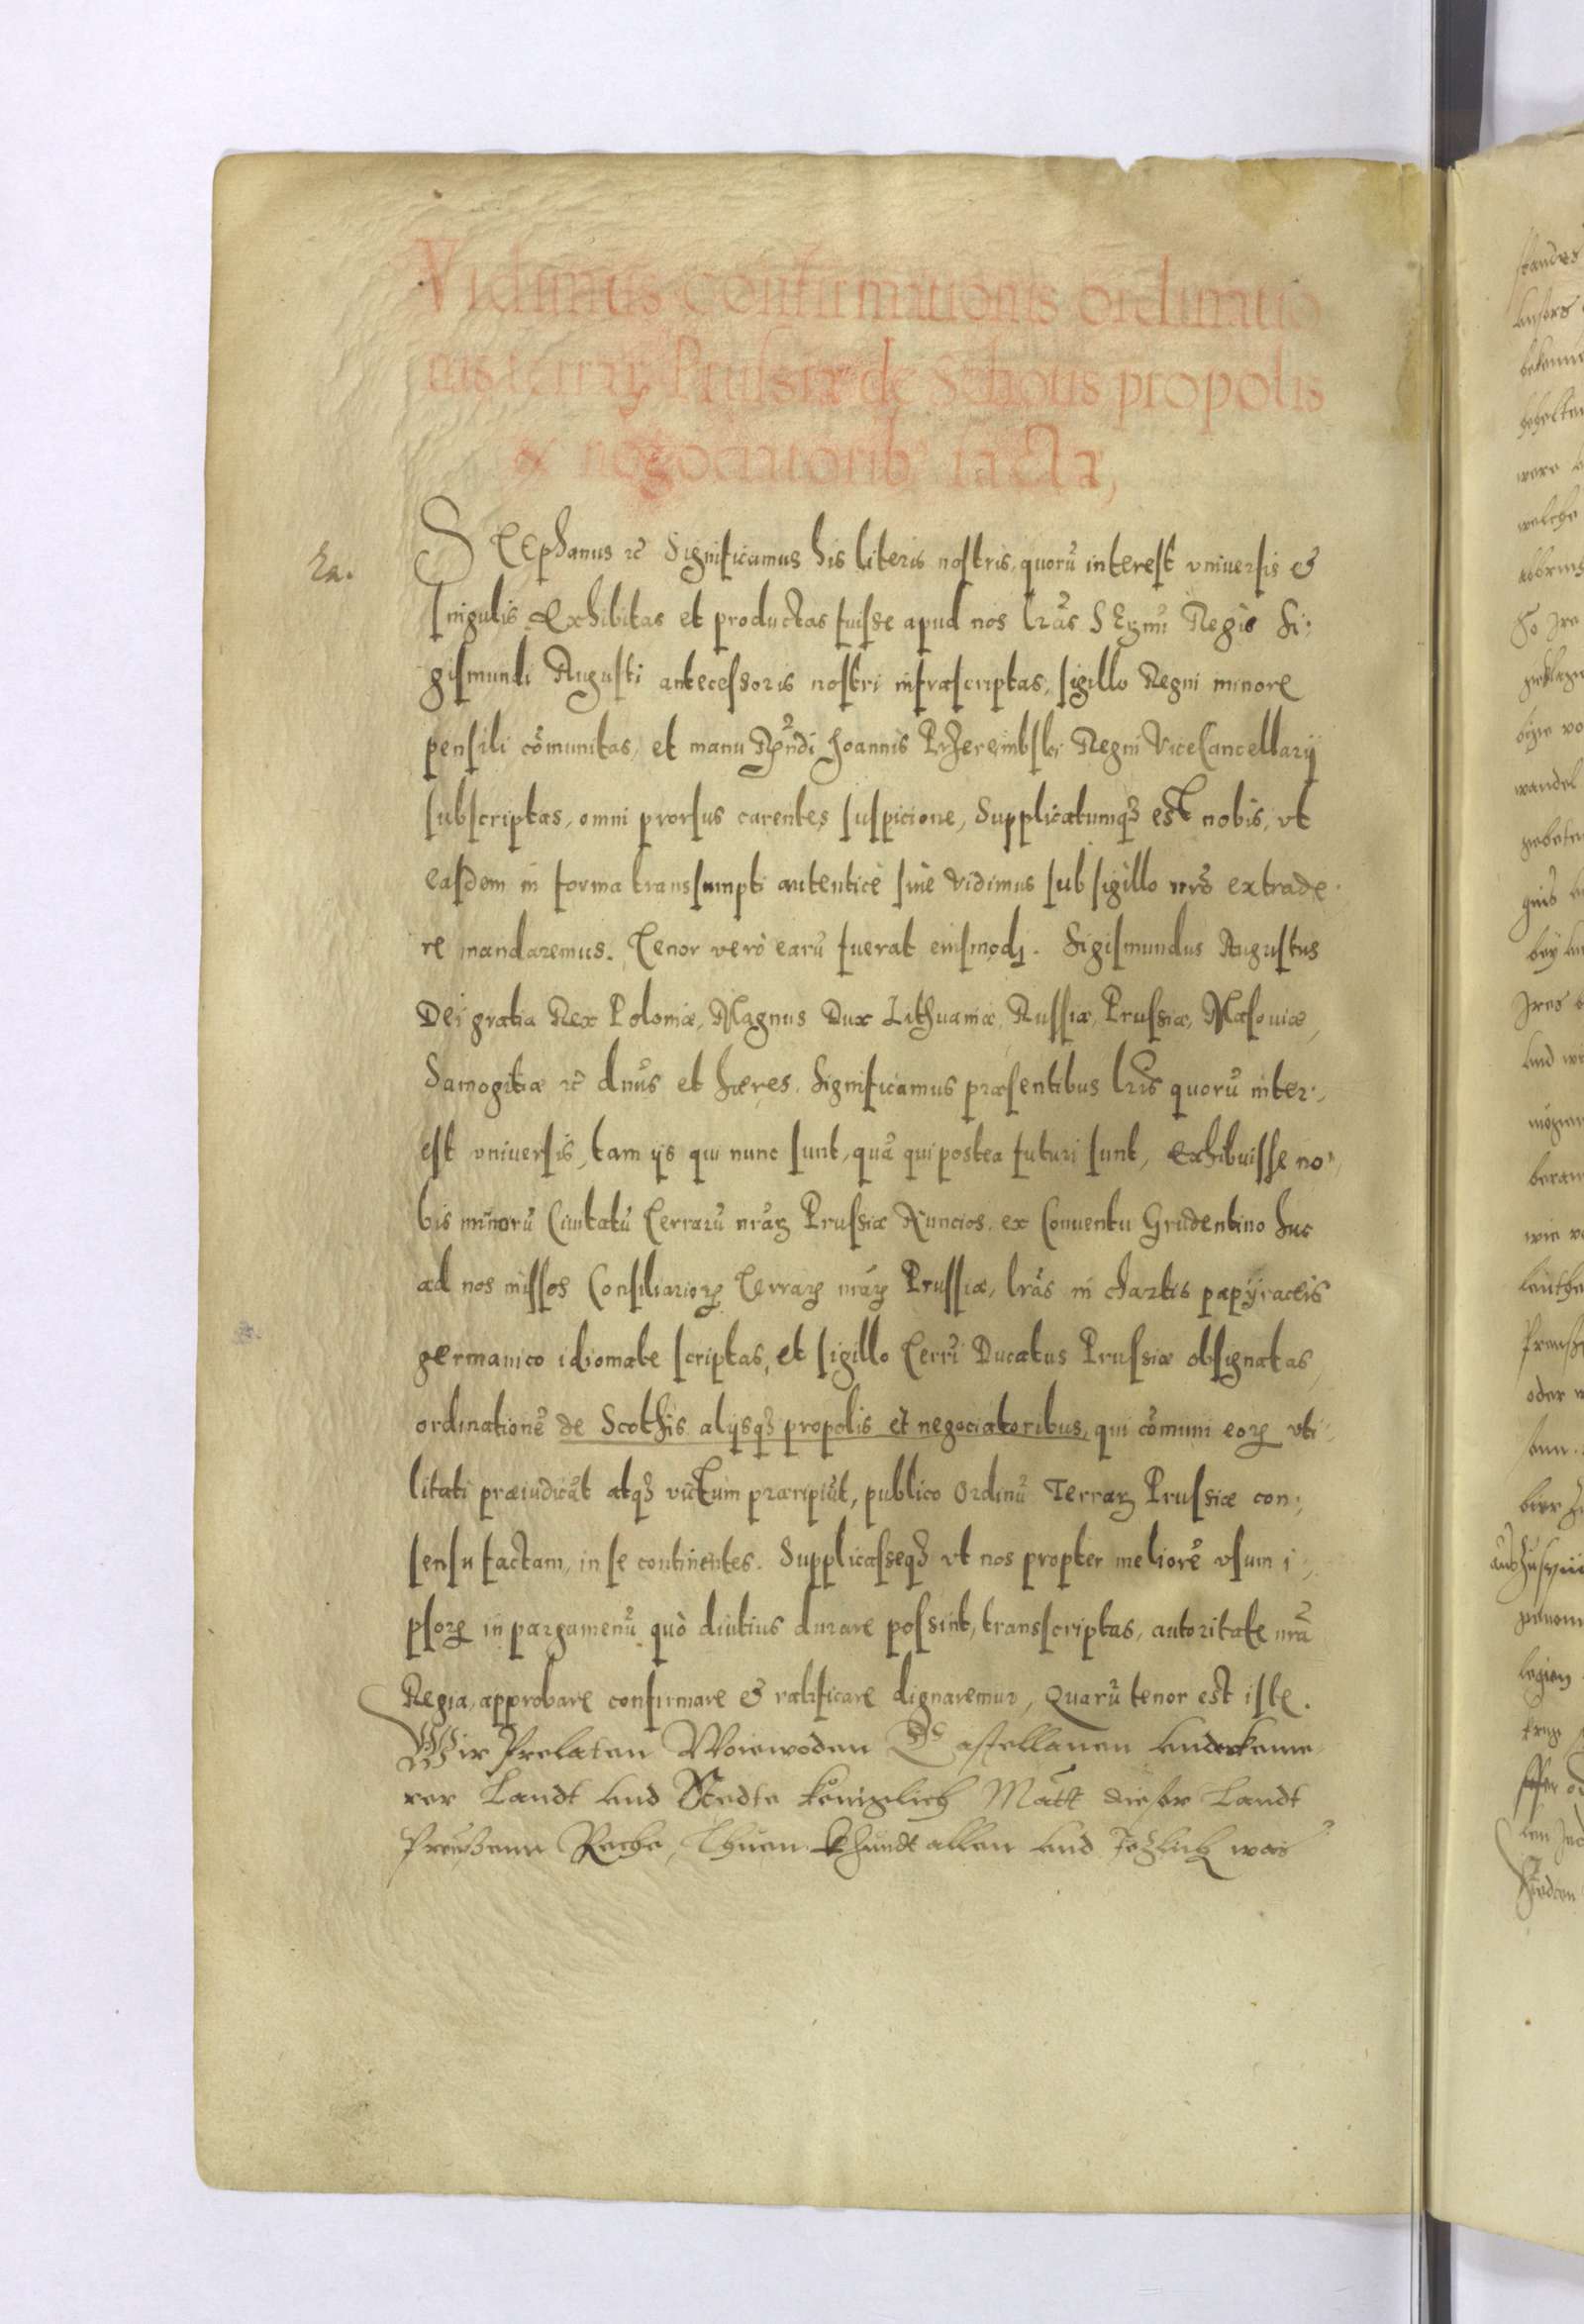 Vidimus confirmationis ordinatio
nis terrarꝝ Prussiæ de Schotis propolis
& negociatorib9 facta,
STEphanus ꝛc̄ Significamus his literis nostris, quorū interest vniuersis &
singulis Exhibitas et productas fuisse apud nos lrãs SEgmi Regis Si:
gismundi Augusti antecessoris nostri infrascriptas, sigillo Regni minore
pensili cōmunitas, et manu Rñdi Joannis Przerembski Regni ViceCancellarij
subscriptas, omni prorsus carentes suspicione, Supplicatumqꝫ est nobis, vt
easdem in forma transsumpti autentice siue Vidimus sub sigillo nrõ extrade
re mandaremus. Tenor verò earū fuerat eiusmodj. Sigismundus Augustus
Dei gratia Rex Poloniæ, Magnus Dux Lithuaniæ, Russiæ, Prussiæ, Masouiæ,
Samogitiæ ꝛc̄ dnũs et hæres. Significamus præsentibus lrĩs quorū inter:
est vniuersis, tam ijs qui nunc sunt, quā qui postea futuri sunt, Exhibuisse no:
bis minorū Ciuitatū Terrarū nrãrꝝ Prussiæ Nuncios, ex Conuentu Grudentino huc
ad nos missos Consiliariorꝝ Terrarꝝ nrãrꝝ Prussiæ, lrãs in chartis papÿraceis
germanico idiomate scriptas, et sigillo Terrĩ Ducatus Prussiæ obsignatas,
ordinationē de Scothis alijsqꝫ propolis et negociatoribus, qui cōmuni eorꝝ vti:
litati præiudicāt atqꝫ victum præripiūt, publico Ordinū Terrarꝝ Prussiæ con:
sensu factam, in se continentes. Supplicasseqꝫ vt nos propter meliorē vsum i:
psorꝝ in pargamenū quò diutius durare possint, transscriptas, autoritate nrã
Regia, approbare confirmare & ratificare dignaremur, Quarū tenor est iste.
Wir Prelaten Woiewoden Castellanen underkeme
rer Landt und Stedte königlich Matt dieser Landt
Preußenn Rethe, Thuen khundt allen und Jtzlich was